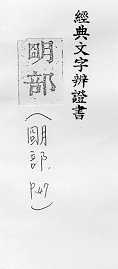 經典文字辨證書
朙部
(朙部. P.47)